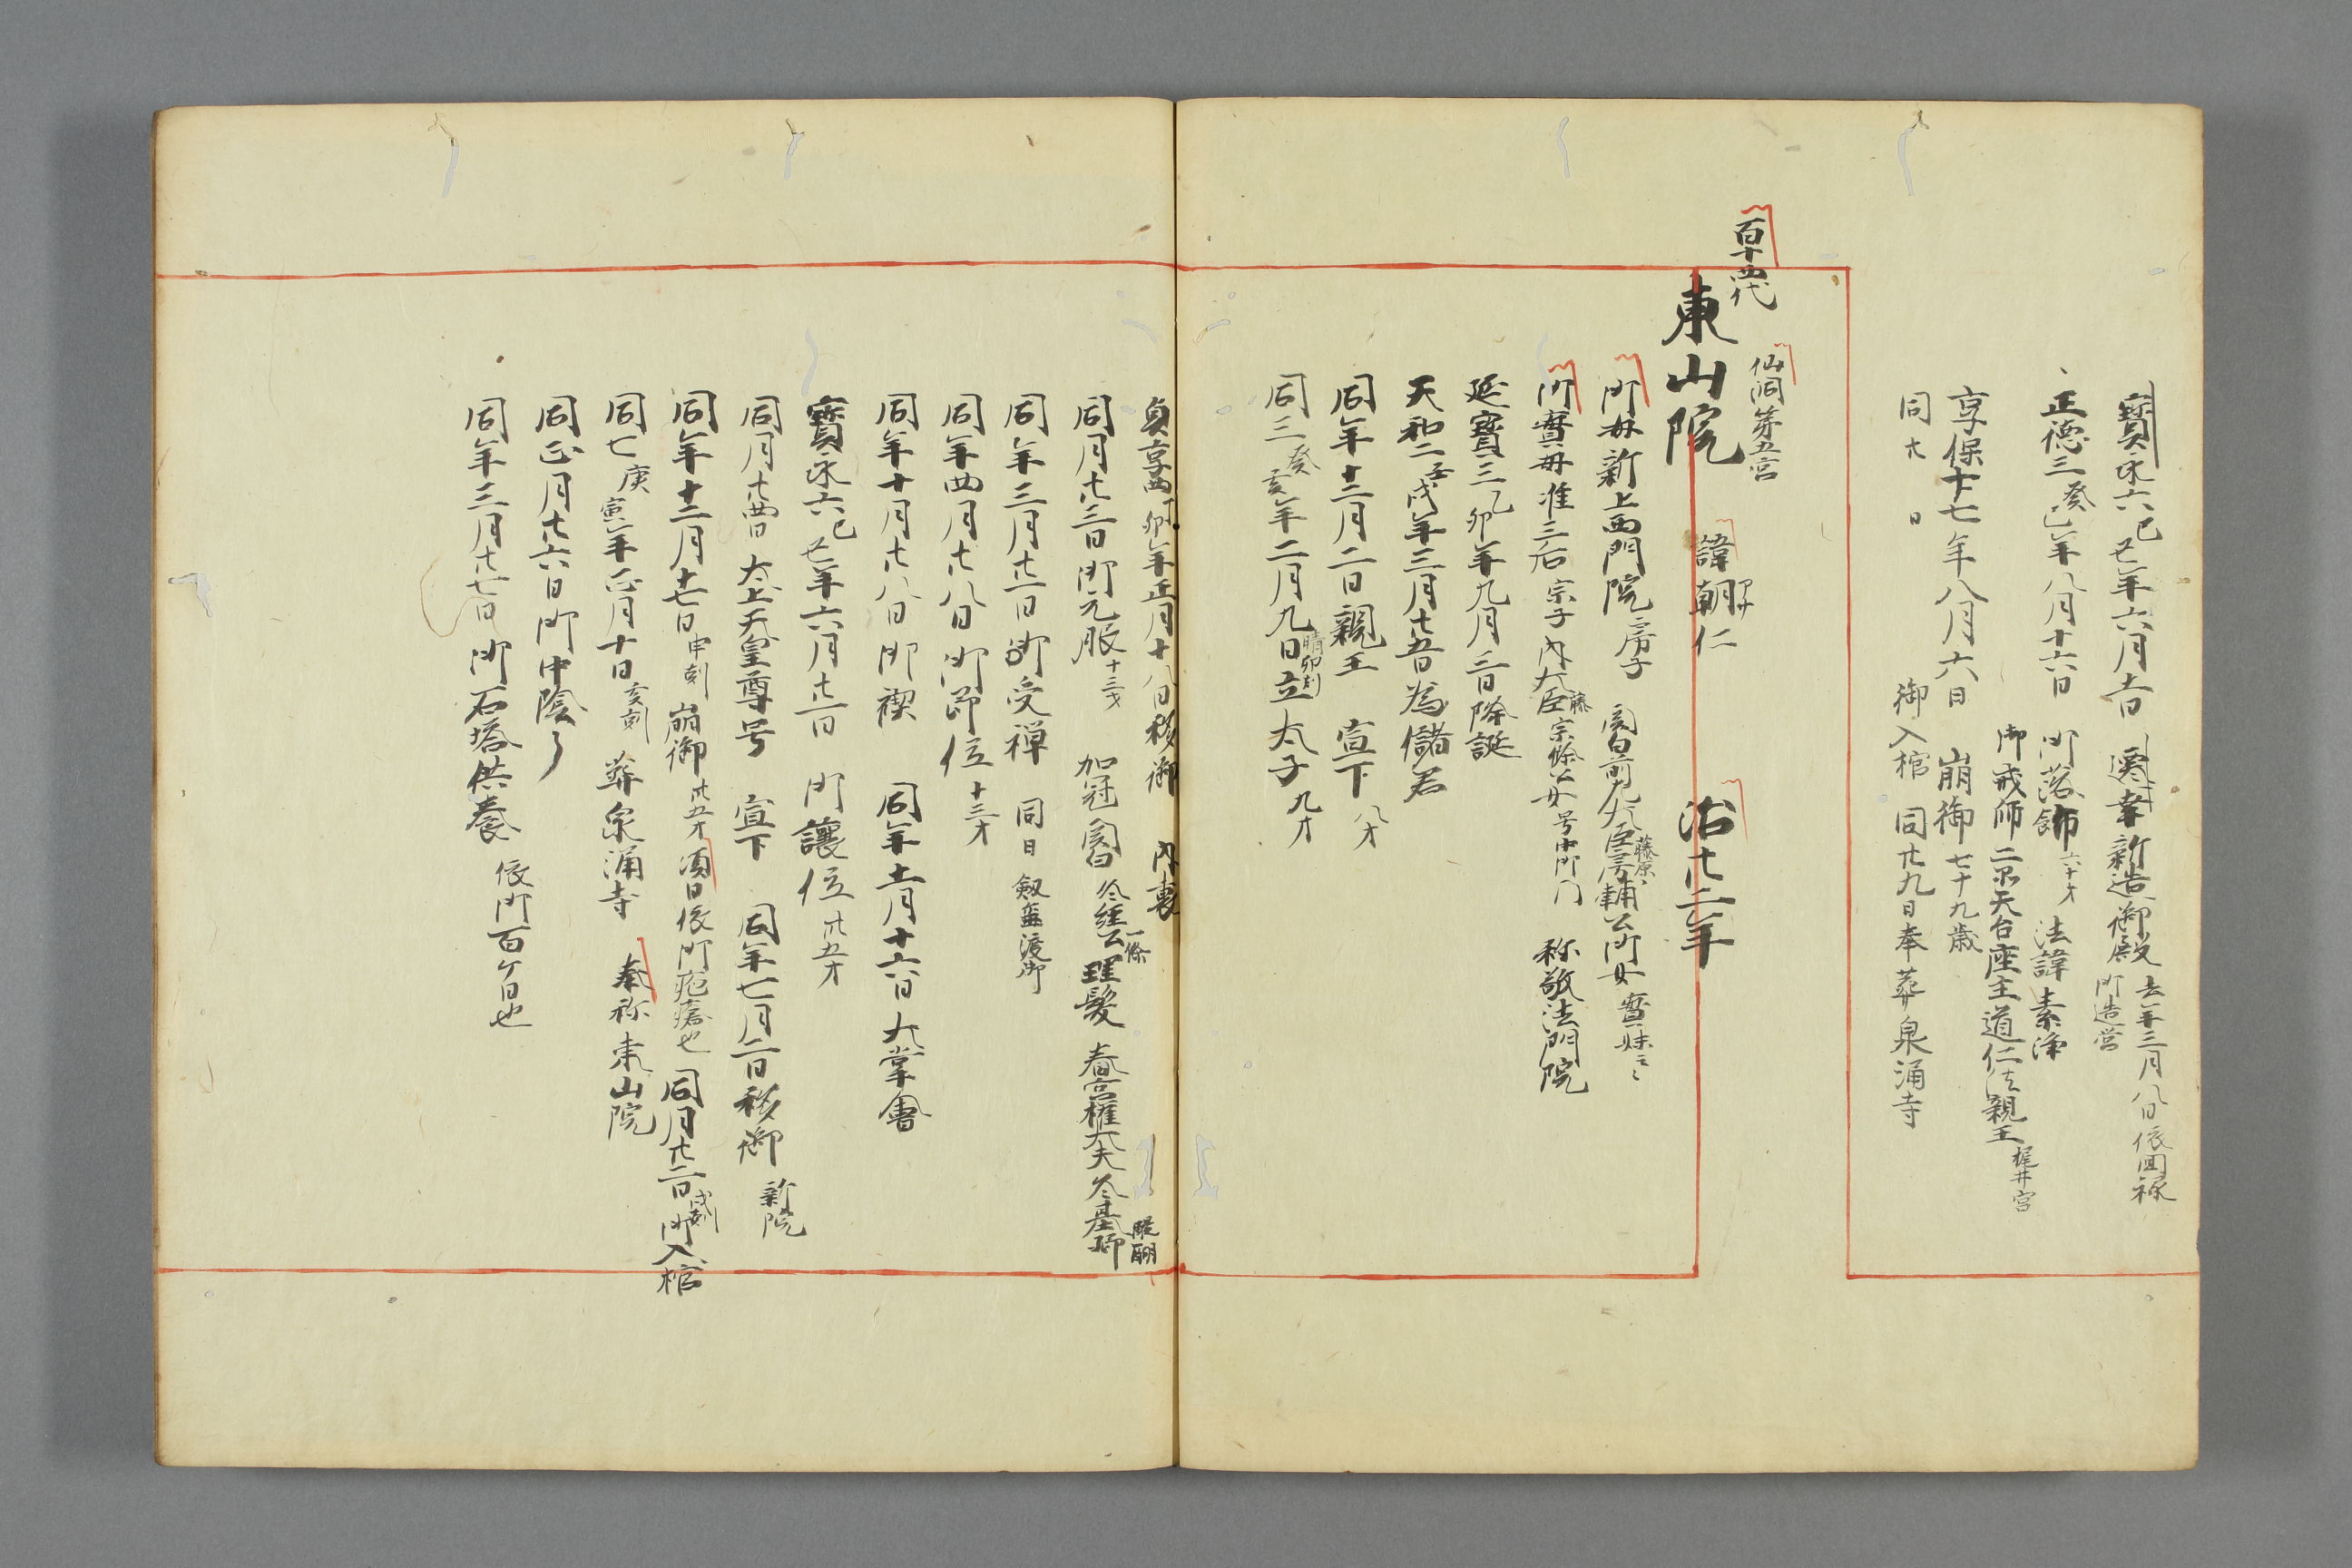 寳永六己丑年六月十一日 還幸新造御殿 去年三月八日依回禄御造営
正德三癸巳年八月十六日 御落飾六十才 法諱素浄
御戒師二品天台座主道仁法親王梶井宮
享保十七年八月六日 崩御七十九歳
同 廿 日 御入棺 同廿九日奉葬泉涌寺
仙洞第五宮
百十四代
東山院 諱朝仁アサ 治廿二年
御母新上西門院房子 関白前左大臣藤原房輔公御女 實妹云々
御實母准三后宗子 内大臣藤宗條公女 号中御門 称敬法門院
延寳三乙卯年九月三日降誕
天和二壬戌年三月廿五日為儲君
同年十二月二日親王 宣下八才
同三癸亥年二月九日晴卯刻立太子九才
貞享四丁卯年正月十八日移御 内裏
同月廿三日御元服十三才 加冠関白冬經公一條 理髪 春宮権大夫冬基卿醍醐
同年三月廿一日御受禅 同日 剱璽渡御
同年四月廿八日御即位十三才
同年十月廿八日御禊 同年十一月十六日大掌會
寳永六己丑年六月廿一日 御讓位卅五才
同月廿四日 太上天皇尊号 宣下 同年七月二日移御 新院
同年十二月十七日申刻 崩御卅五才 須日依御疱瘡也 同月廿二日戌刻御入棺
同七庚寅年正月十日亥刻 葬泉涌寺 奉称東山院
同正月廿六日御中陰了
同年三月廿七日御石塔供養 依御百ケ日也